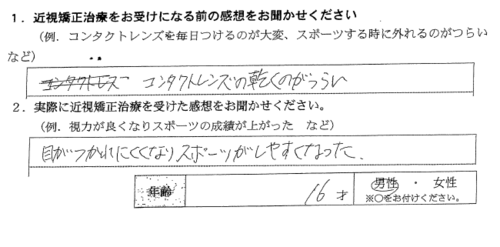 1．近視矯正治療をお受けになる前の感想をお聞かせください
（例．コンタクトレンズを毎日つけるのが大変、スポーツする時に外れるのがつらい
など）
コンタクトレンズの乾くのがつらい
2．実際に近視矯正治療を受けた感想をお聞かせください。
（例．視力が良くなりスポーツの成績が上がった　など）
目がつかれにくくなりスポーツがしやすくなった．
年齢　16才　男性　・　女性
※○をお付けください。